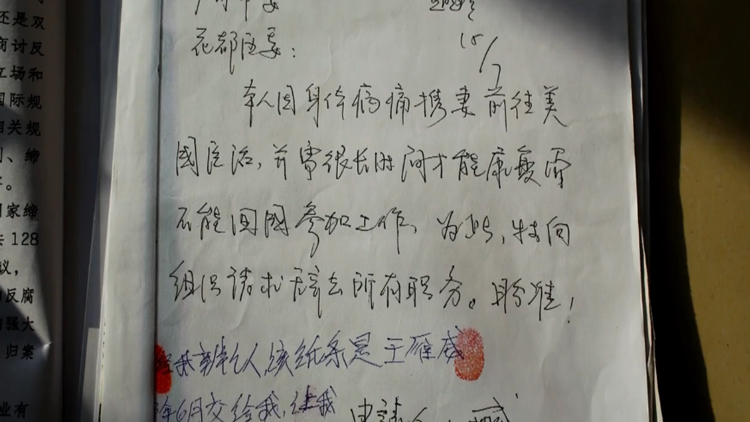 还是双
商讨反
立场和
国际规
相关规
。
国家缔
128
反腐
强大
归案
业有
花都区委:
15/7
本人因身体病痛携妻前往美
国医治,并需很长时间才能康复而
不能回国参加工作,为此,特向
组织请求辞去所有职务。盼准!
人该纸条是王雁威
年6月交给我,让我
申请人: